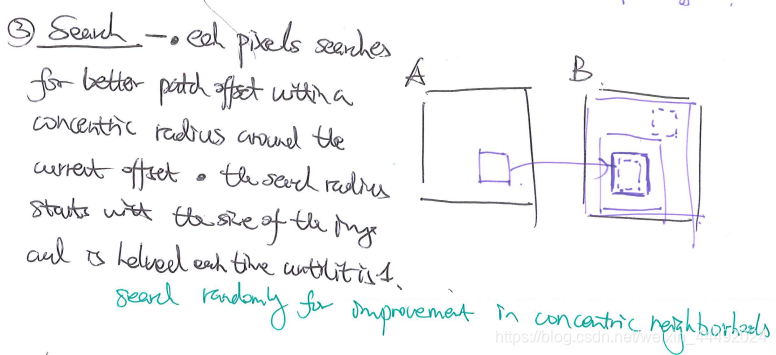 ③ Search — • each pixels searches
for better patch offset within a
concentric radius around the
current offset • the search radius
starts with the size of the image
and is halved each time until it is 1.
search randomly for improvement in concentric neighborhoods
A
B
https://blog.csdn.net/weixin_44492024